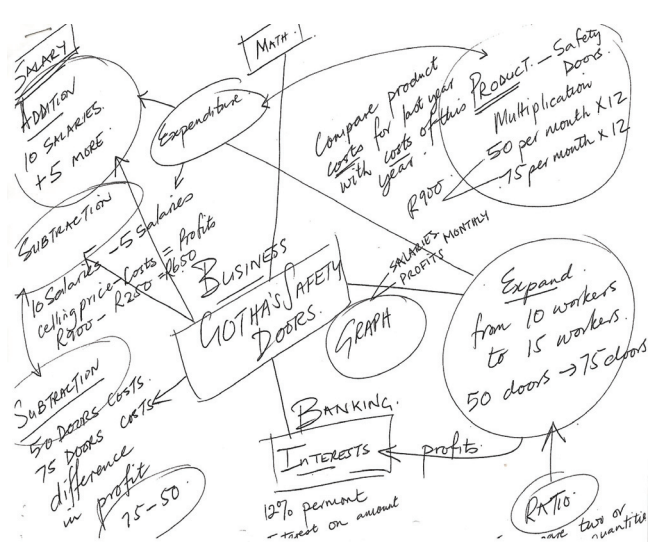 SALARY
ADDITION
10 SALARIES.
+5 MORE.
MATH.
Expenditure
Compare product
costs for last year
with costs of this
year.
PRODUCT - Safety
Doors.
Multiplication
50 per month X12
75 per month X12
R900
SUBTRACTION
10 Salaries - 5 Salaries
celling price - Costs = Profits
R900 - R250 = R650
BUSINESS
GOTHA'S SAFETY
DOORS.
SALARIES
PROFITS MONTHLY
GRAPH
Expand
from 10 workers
to 15 workers.
50 doors → 75 doors
SUBTRACTION
50 DOORS COSTS.
75 DOORS COSTS
difference
in profit
75-50
BANKING.
INTERESTS
profits.
12% permont
interest on amount
RATIO.
two or
quantities